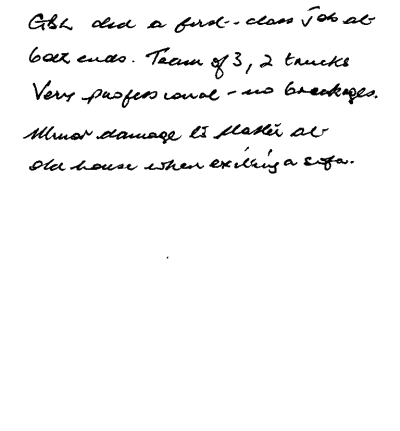 GBL did a first-class job at
both ends. Team of 3, 2 trucks
Very professional - no breakages.
Minor damage to plaster at
old house when exiting a sofa.